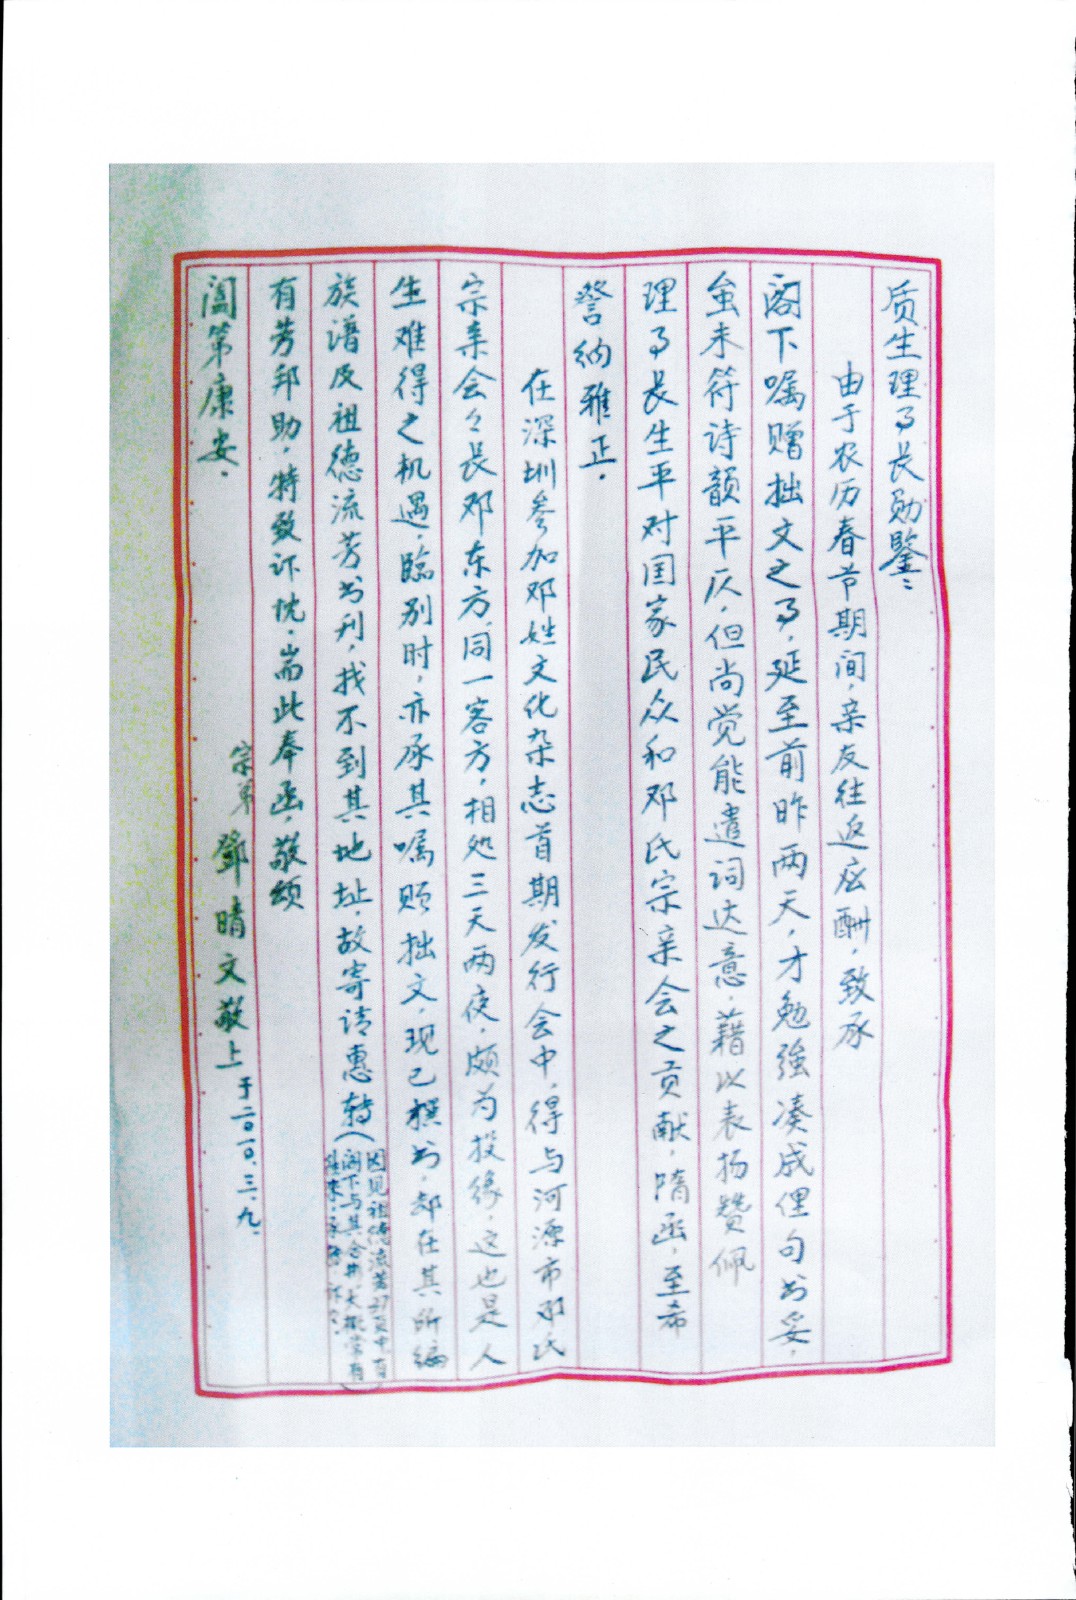 质生理事长勋鉴：
由于农历春节期间，亲友往返应酬，致承
阁下嘱赠拙文之事，延至前昨两天，才勉强凑成俚句书妥，
虽未符诗韵平仄，但尚觉能遣词达意，藉以表扬赞佩
理事长生平对国家民众和邓氏宗亲会之贡献，随函，至希
詧纳雅正．
在深圳参加邓姓文化杂志首期发行会中，得与河源市邓氏
宗亲会々长邓东方，同一客方，相处三天两夜，颇为投缘，这也是人
生难得之机遇，临别时，亦承其嘱赐拙文，现已撰书，却在其所编
族谱及祖德流芳书刊，找不到其地址，故寄请惠转（
因见祖德流芳刊页中有
阁下与其合册，大概常有）
往来，
有劳邦助，特致订忱，耑此奉函，敬颂
阖第康安．
宗弟 鄧晴文敬上 于二〇一〇.三.九.